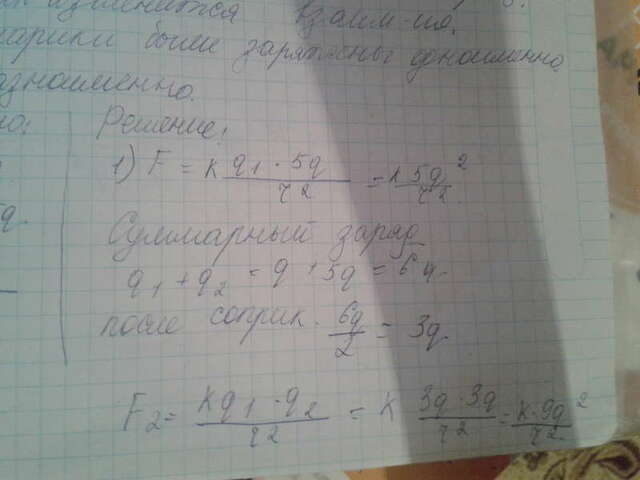 изменится взаим-ия.
шарики были заряжены одноименно
азноименно.
но: Решение:
1) F = k q1 · 5q / r² = k 5q² / r².
5q. Суммарный заряд
q1 + q2 = q + 5q = 6q.
после соприк. 6q / 2 = 3q.
F2 = k q1 · q2 / r² = k 3q · 3q / r² = k · 9q² / r²